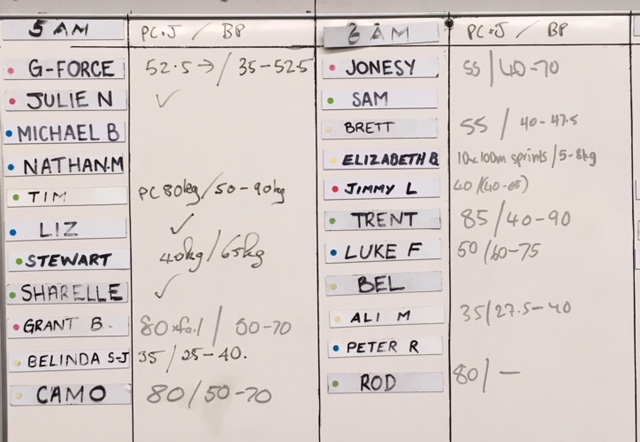 5 AM PC+J / BP
G-FORCE 52.5→ / 35-52.5
JULIE N ✓
MICHAEL B
NATHAN.M
TIM PC 80kg / 50-90kg
LIZ ✓
STEWART 40kg / 65kg
SHARELLE ✓
GRANT B. 80xfail / 50-70
BELINDA S-J 35 / 25-40.
CAMO 80 / 50-70
6 AM PC+J / BP
JONESY 55 / 40-70
SAM
BRETT 55 / 40-47.5
ELIZABETH B 10x100m sprints / 5-8kg
JIMMY L 40 /
TRENT 85 / 40-90
LUKE F 50 / 60-75
BEL
ALI M 35 / 27.5-40
PETER R
ROD 80 / —